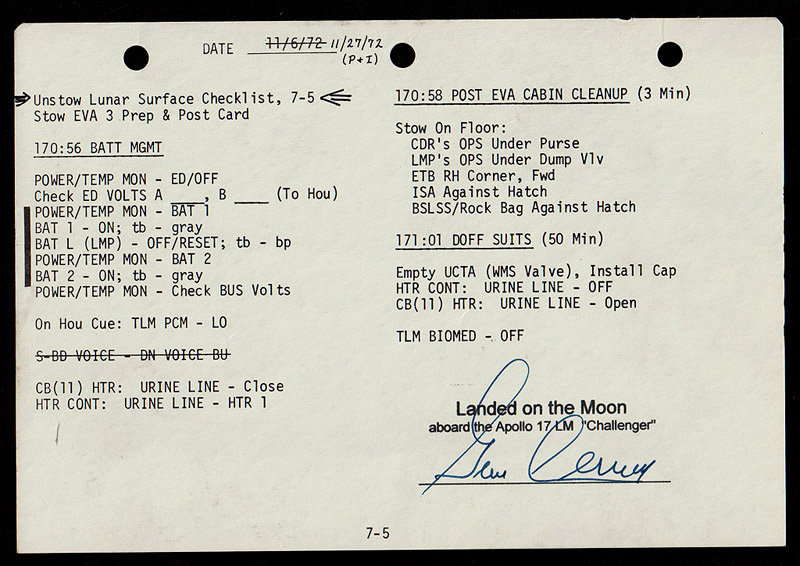 DATE 11/6/72 11/27/72
(P+I)
Unstow Lunar Surface Checklist, 7-5
Stow EVA 3 Prep & Post Card
170:56 BATT MGMT
POWER/TEMP MON - ED/OFF
Check ED VOLTS A ____, B ____ (To Hou)
POWER/TEMP MON - BAT 1
BAT 1 - ON; tb - gray
BAT L (LMP) - OFF/RESET; tb - bp
POWER/TEMP MON - BAT 2
BAT 2 - ON; tb - gray
POWER/TEMP MON - Check BUS Volts
On Hou Cue: TLM PCM - LO
S-BD VOICE - DN VOICE BU
CB(11) HTR: URINE LINE - Close
HTR CONT: URINE LINE - HTR 1
170:58 POST EVA CABIN CLEANUP (3 Min)
Stow On Floor:
CDR's OPS Under Purse
LMP's OPS Under Dump Vlv
ETB RH Corner, Fwd
ISA Against Hatch
BSLSS/Rock Bag Against Hatch
171:01 DOFF SUITS (50 Min)
Empty UCTA (WMS Valve), Install Cap
HTR CONT: URINE LINE - OFF
CB(11) HTR: URINE LINE - Open
TLM BIOMED - OFF
Landed on the Moon
aboard the Apollo 17 LM "Challenger"
Gene Cernan
7-5